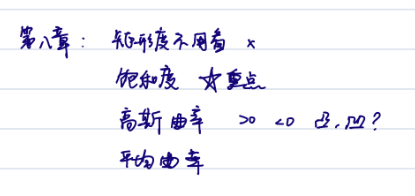 第八章: 矩形度不用看 ×
饱和度 ☆重点
高斯曲率 >0 <0 凸,凹?
平均曲率